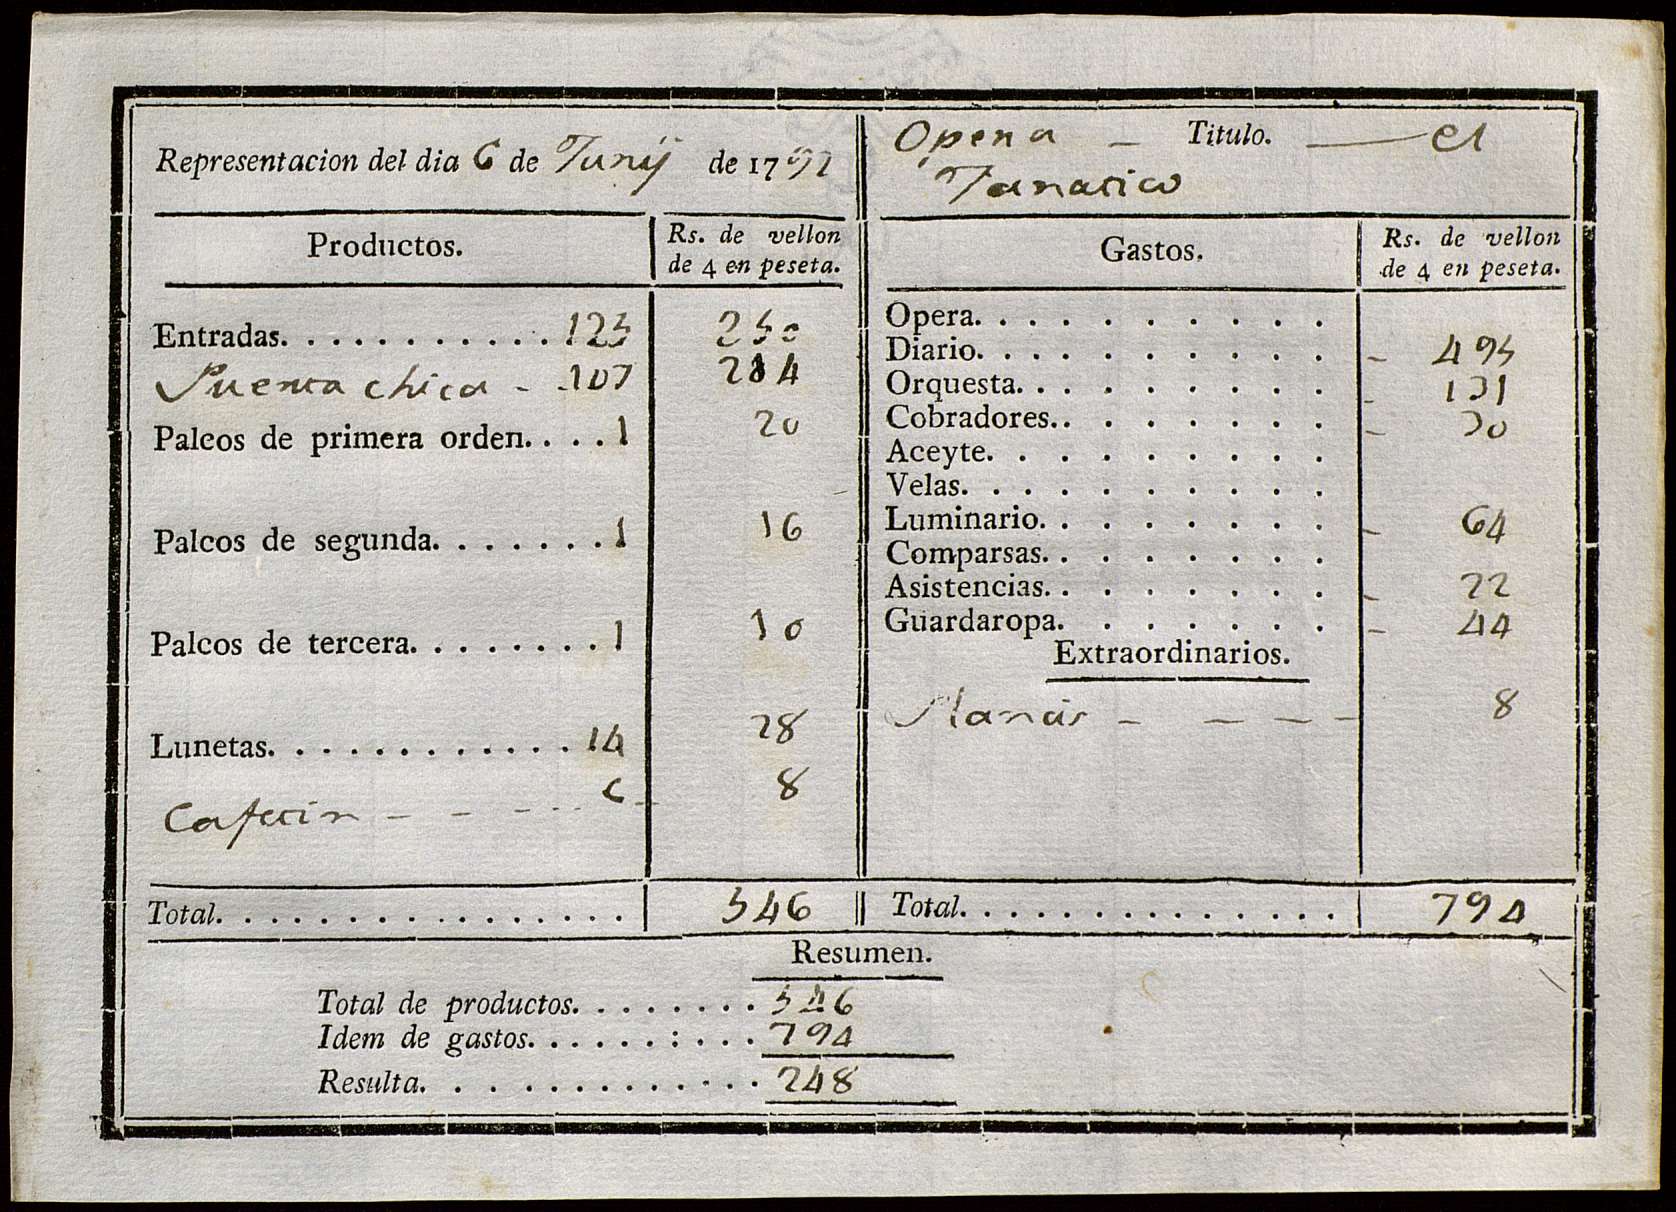 Representacion del dia 6 de Junij de 1792
Opera - Titulo. - El
Fanatico
Productos. Rs. de vellon
de 4 en peseta.
Gastos. Rs. de vellon
de 4 en peseta.
Entradas. 125 250
Puerta chica - 107 214
Palcos de primera orden. 1 20
Palcos de segunda. 1 16
Palcos de tercera. 1 10
Lunetas. 14 28
Cafetin - - - 6 - 8
Total. 546
Opera.
Diario. - 495
Orquesta. - 131
Cobradores. - 30
Aceyte.
Velas.
Luminario. - 64
Comparsas.
Asistencias. - 22
Guardaropa. - 44
Extraordinarios.
- - - - 8
Total. 794
Resumen.
Total de productos. 546
Idem de gastos. 794
Resulta. 248